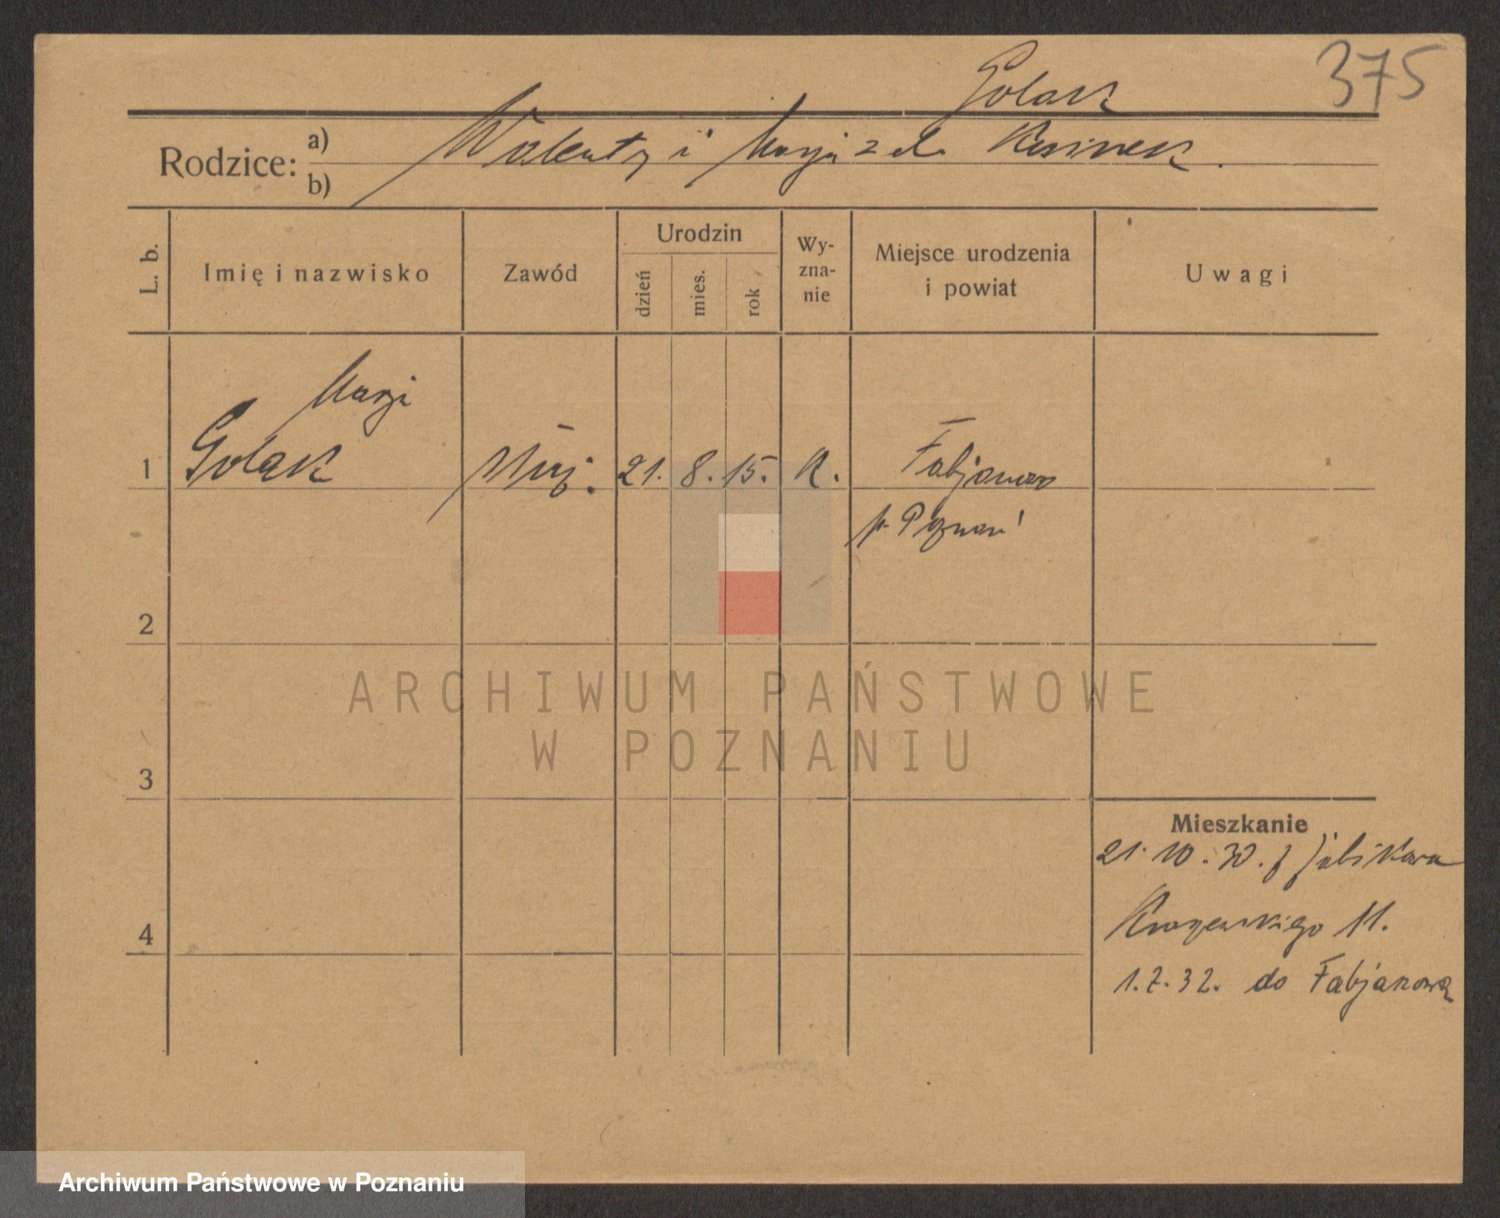 375
Golask
Rodzice:
a) Walenty i Marja z d.
b)
L. b.
Imię i nazwisko
Zawód
Urodzin
dzień
mies.
rok
Wy-
zna-
nie
Miejsce urodzenia
i powiat
Uwagi
Marja
1 Golask służ. 21. 8. 15. k. Fabjanowo
p. Poznań
2
ARCHIWUM PAŃSTWOWE
W POZNANIU
3
Mieszkanie
21.10.30. z
4 11.
1.7.32. do Fabjanowa
Archiwum Państwowe w Poznaniu